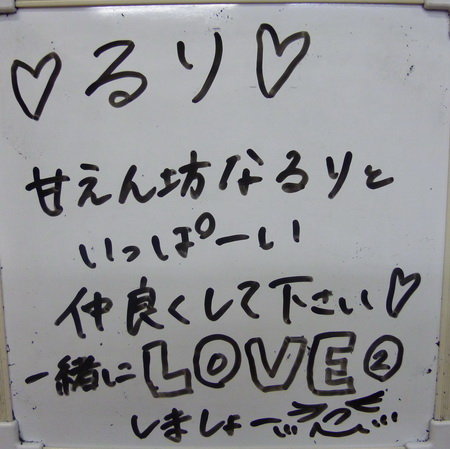 ♡るり♡
甘えん坊なるりと
いっぱーい
仲良くして下さい♡
一緒にLOVE②
しましょー